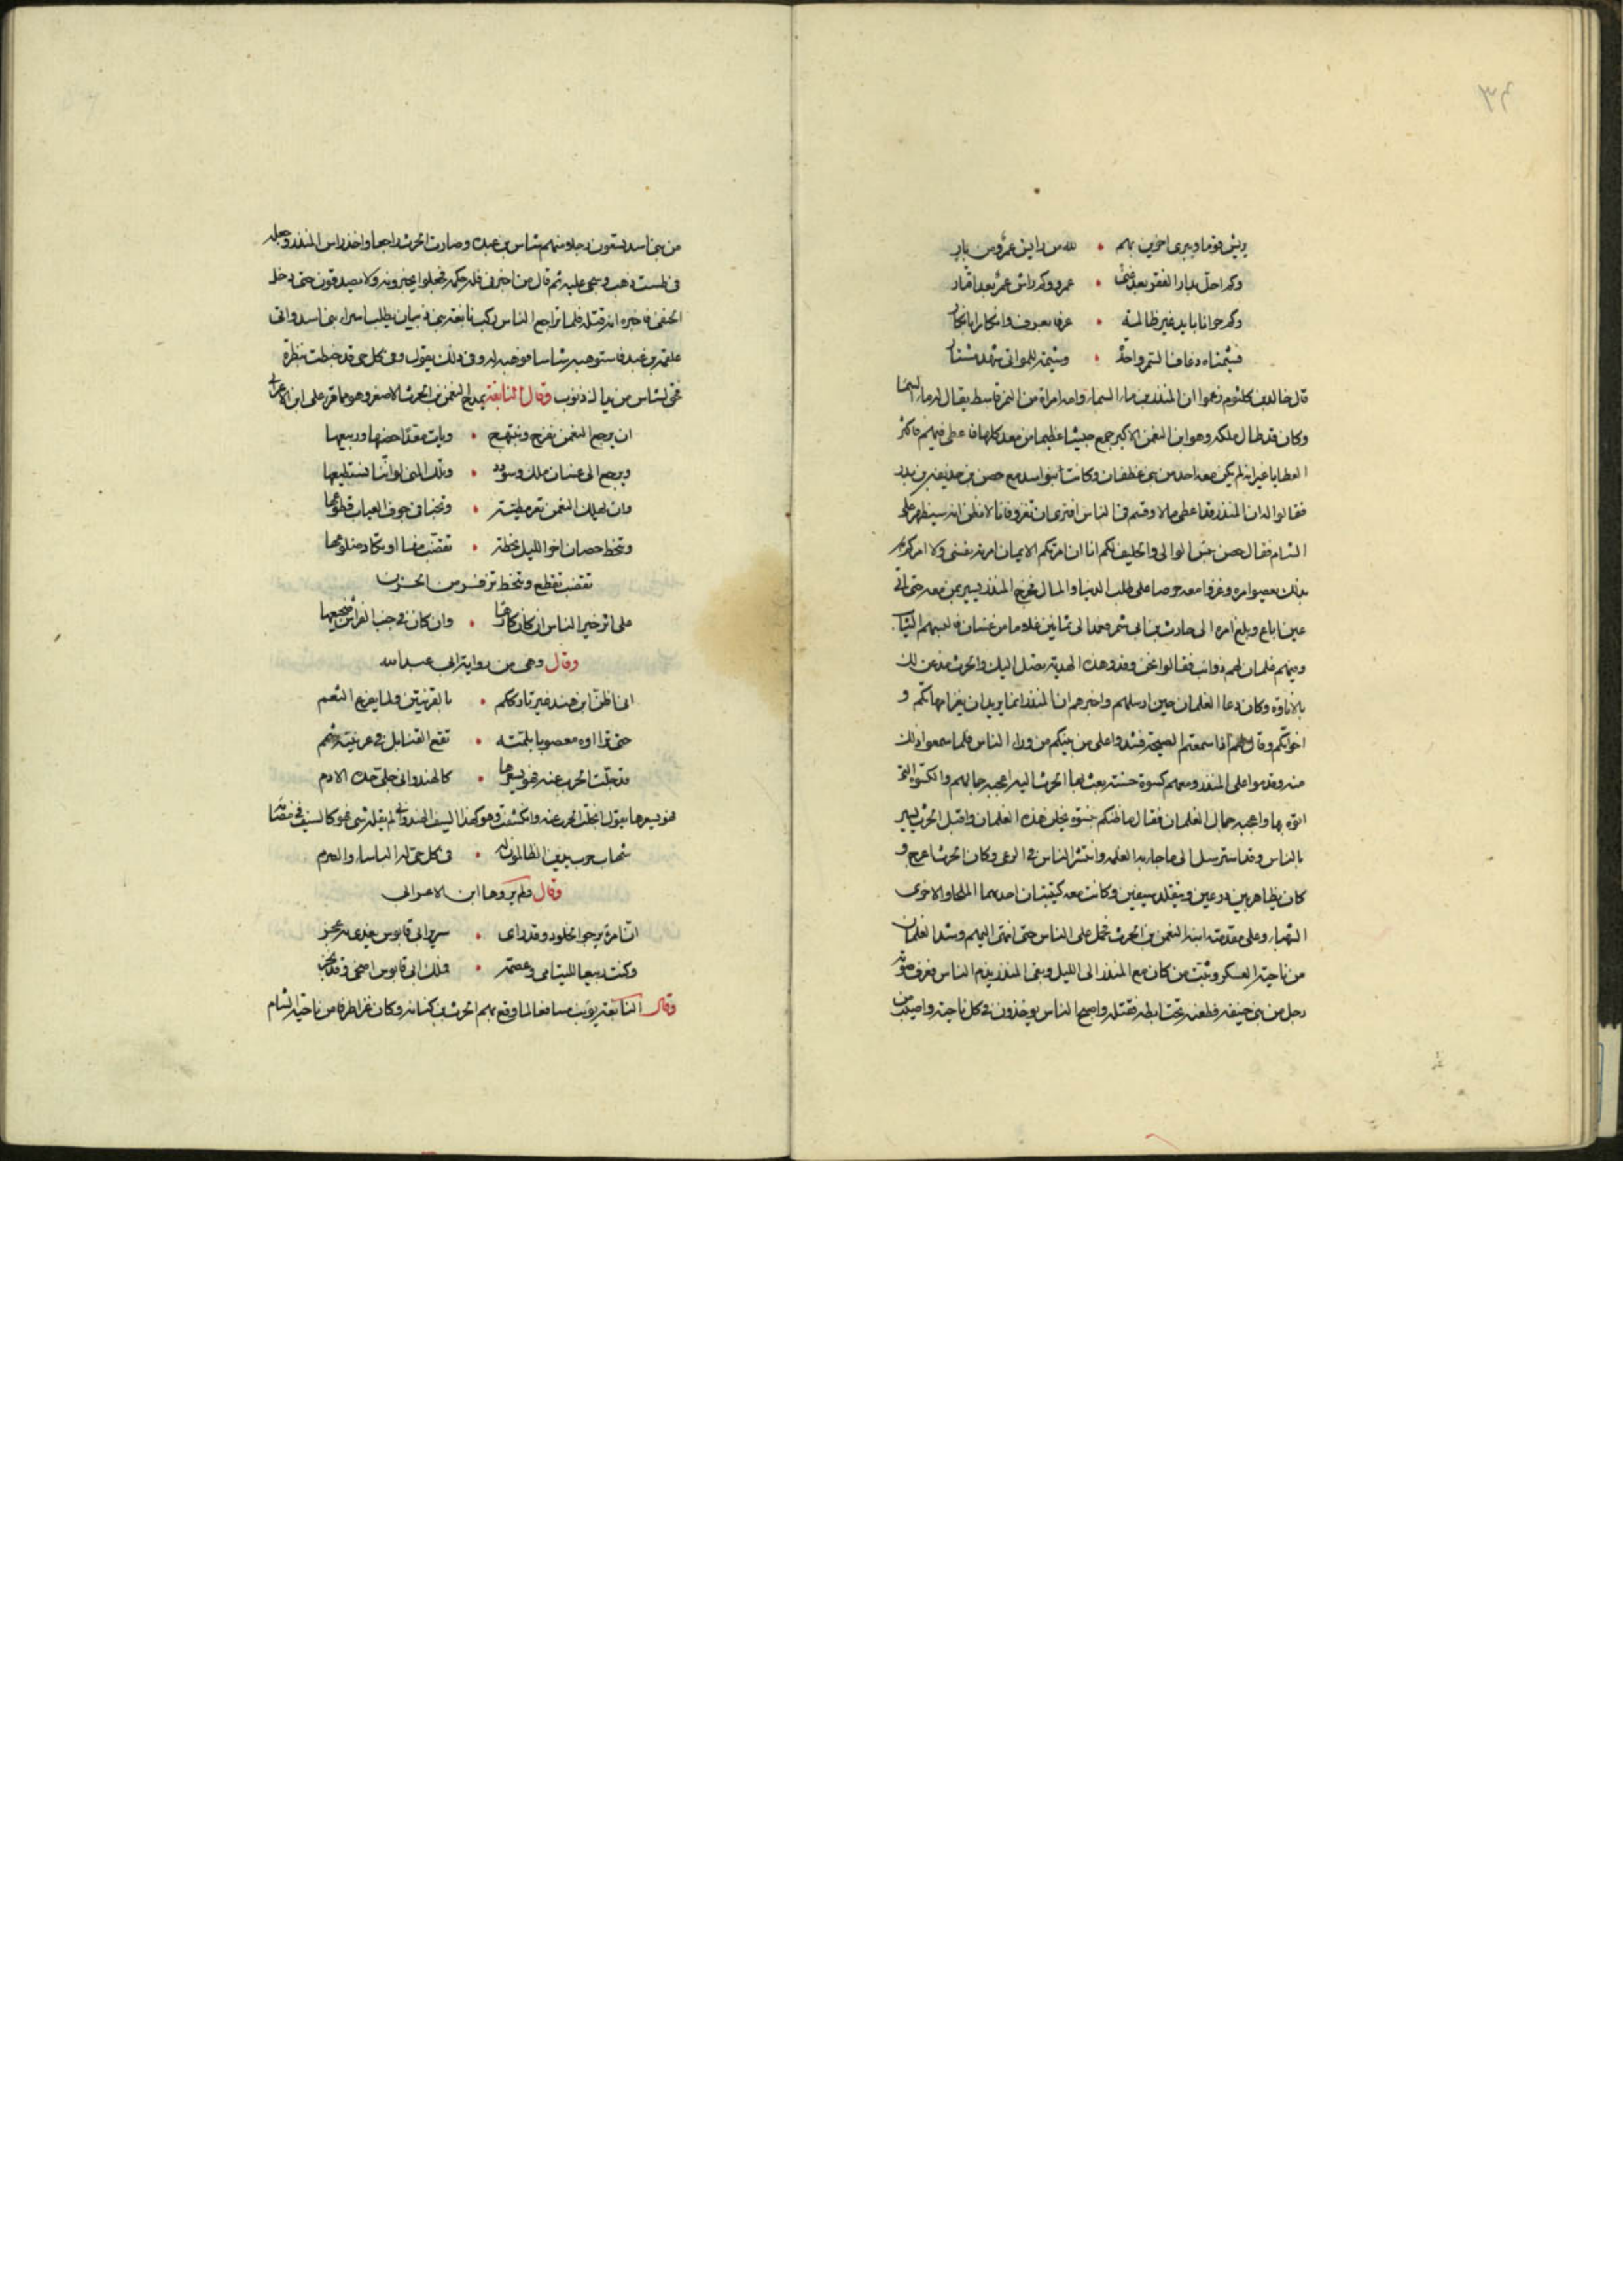 ٦٣
يريش قوما ويبرى اخرين بهم • لله من رايش عمرو ومن بار
وكم احل بدار الفقر بعد غنى • عمرو وكم راش عمرو بعد اقتار
وكم جزانا بايد غير ظالمة • عرفا بعرف وانكارا بانكار
قال خالد بن كلثوم زعموا ان المنذر بن ماء السماء وامه امراة من النمر قاسط يقال لها ماء السما
وكان قد طال ملكه وهو ابن النعمن الاكبر جمع جيشا عظيما من معد كلها فاعطى فيهم فاكثر
العطايا غير انه لم يكن معه احد من بنى غطفان وكانت بنو اسد مع حصن بن حذيفة بن بدر
فقالوا له ان المنذر قد اعطى مالا وقسم فى الناس افترى ان نغزو فانا لا نظن انه سيظهر على
الشام فقال حصن الوالى والحليف لكم انا ان امرتكم الايمان امرته بغشى ولا امركم
بذلك فعصوا امره وغزوا معه حرصا على طلب الدنيا والمال فخرج المنذر يسير بمن معه حتى اتى
عين اباغ وبلغ امره الى حارث بن ابى شمر فعمد الى ثمانين غلاما من غسان فالبسهم الثياب
وفيهم غلمان لهم ذوائب فقالوا نحن وفد وهذه الهدية تصل اليك والحرث مذعن لك
بالاتاوة وكان دعا الغلمان حين ارسلهم واخبرهم ان المنذر انما يريد ان يغزا امهاتكم و
اخواتكم وقال لهم اذا سمعتم الصيحة فشدوا على من يليكم من وراء الناس فلما سمعوا ذلك
منه وقدموا على المنذر ومعهم كسوة حسنة بعث بها الحرث اليه اعجبه جمالهم والكسوة التى
اتوه بها واعجبه جمال الغلمان فقال ما ظنكم بنسوة نجلن هذه الغلمان واقبل الحرث يسير
بالناس وقد استرسل الى ما جاء به الغلمة وانتشر الناس فى الرعى وكان الحرث اعرج و
كان يظاهر بين درعين ويتقلد سيفين وكانت معه كتيبتان احدهما الملحا والاخرى
الشهباء وعلى مقدمته ابنه النعمن بن الحرث فحمل على الناس حتى انتهى اليهم وشد الغلمان
من ناحية العسكر وثبت من كان مع المنذر الى الليل وبقى المنذر يذم الناس فعرف صوته
رجل من بنى حنيفة فطعنه تحت ابطه فقتله واصبح الناس يوخذون فى كل ناحية واصيب من
من بنى اسد سبعون رجلا منهم شاس بن عبدة وصارت الحرث راجعا واخذ راس المنذر وجعله
فى طست ذهب وسجى عليه ثم قال من اخبرنى فله حكمه فجعلوا يخبرونه ولا يصدقون حتى دخل
الحنفى فاخبره انه قتله فلما تراجع الناس ركب نابغة بنى ذبيان يطلب اسراء بنى اسد واتى
علقمة بن عبدة فاستوهبه شاسا فوهبه له وفى ذلك يقول وفى كل حى قد خبطت بنظرة
فحق لشاس من نداك ذنوب وقال النابغة يمدح النعمن بن الحرث الاصغر وهو مما قرء على ابن الاعرابى
ان يرجع النعمن نفرح ونبتهج • ويات معدا خصبها وربيعها
ويرجع الى غسان ملك وسودد • وتلك المنى لو اننا نستطيعها
وان يهلك النعمن تعر مطيته • وتخبا فى جوف العياب قطوعها
وتنحط حصان اخر الليل نحطة • تقضب منها او تكاد ضلوعها
تقضب تقطع وتنحط تزفر من الحزن
على اثر خير الناس ان كان هالكا • وان كان فى جنب الفراش ضجيعها
وقال وهى من رواية ابى عبد الله
انى اظن ابن هند غير تارككم • بالقريتين ولما يفزع النعم
حتى تراوه معصوبا بلمته • نقع القنابل فى عرنينه شمم
قد جلت الحرب عنه فهو يسعرها • كالهندوانى جلى حده الادم
شهاب حرب يدين الظالمون له • فى كل حى له الباساء والنعم
وقال ولم يروها ابن الاعرابى
ان امرؤ يرجوا الخلود وقد راى • سرير ابى قابوس يغدى به عجز
وكنت ربيعا لليتامى وعصمة • فملك ابى قابوس اضحى وقد نجز
وقال النابغة يؤنب مسافعا لما وقع بهم الحرث بن كنانة وكان غزا طرفا من ناحية الشام